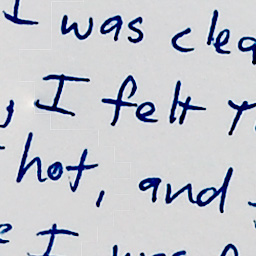 I was clea
, I felt
hot, and
I was